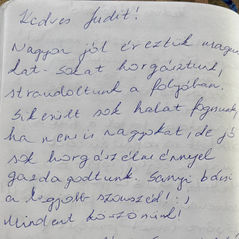 Kedves Judit!
Nagyon jól éreztük magun
kat - sokat horgásztunk,
strandoltunk a folyóban.
Sikerült sok halat fognunk,
ha nem is nagyokat, de jó
sok horgászélménnyel
gazdagodtunk. Sanyi bácsi
a legjobb szomszéd! :)
Mindent köszönünk!